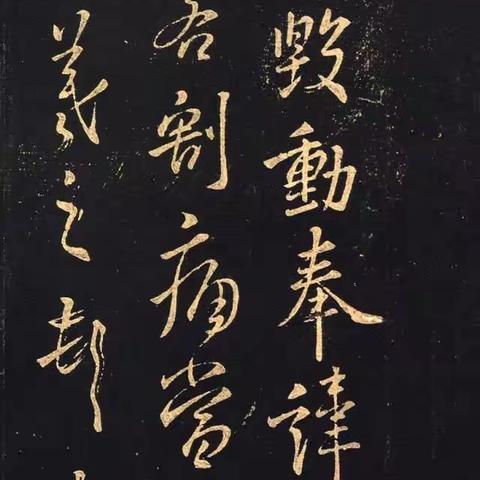 毀動奉諱
各割痛當
羲之頓